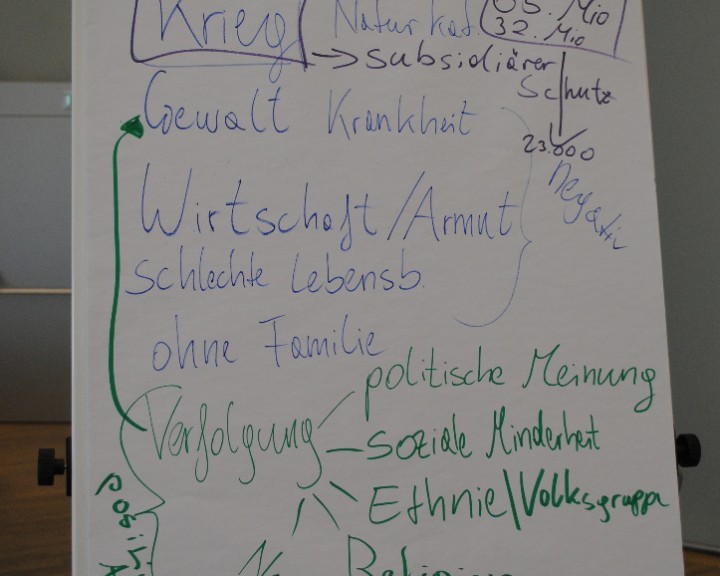 Krieg Naturkat. 65. Mio
32. Mio
→ subsidiärer
Schutz
Gewalt Krankheit
23.000
negativ
Wirtschaft/Armut
schlechte Lebensb.
ohne Familie
politische Meinung
Verfolgung
soziale Minderheit
Ethnie/Volksgruppe
Religion